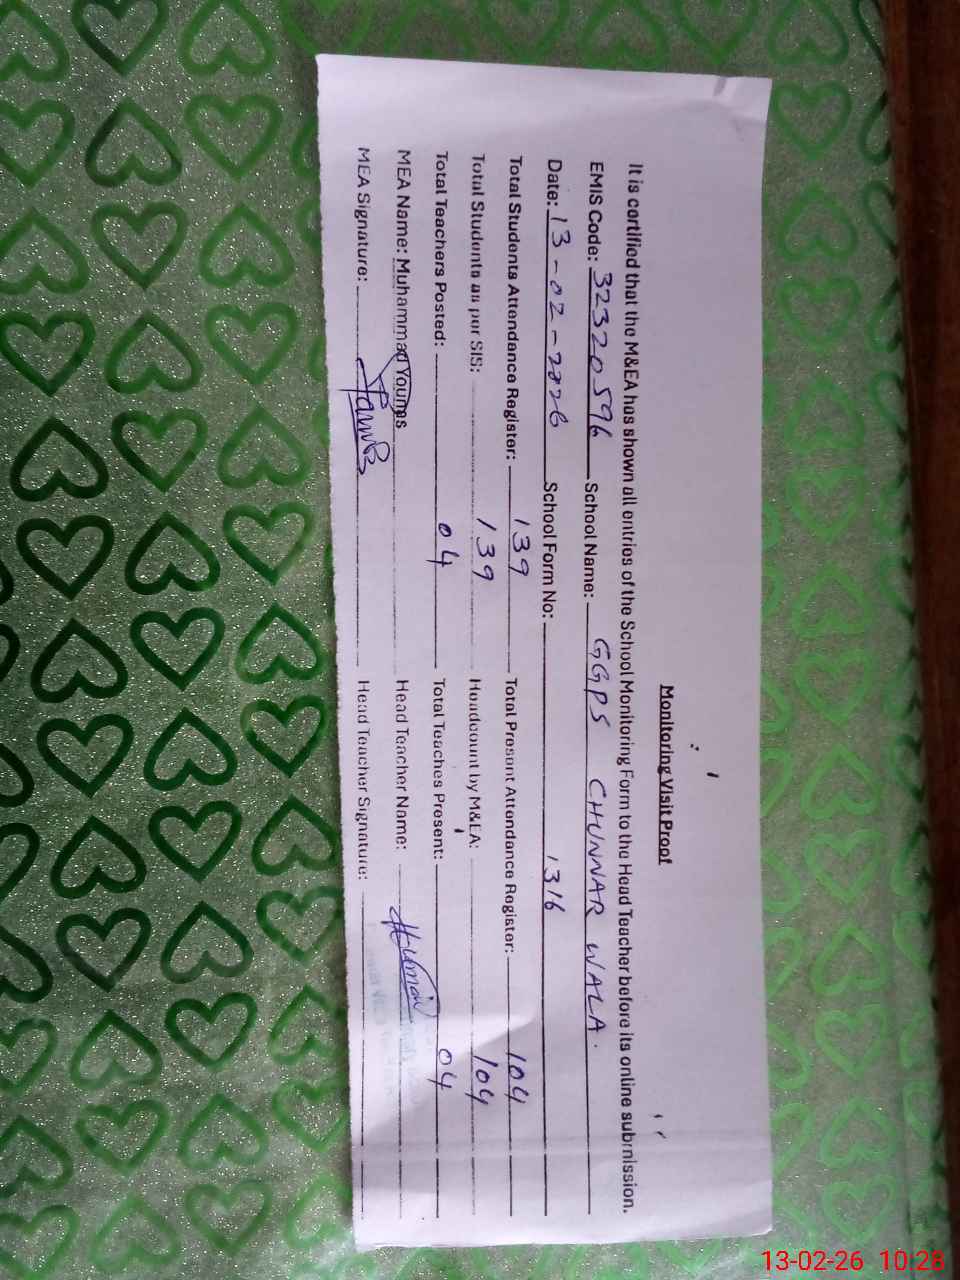 Monitoring Visit Proof
It is certified that the M&EA has shown all entries of the School Monitoring Form to the Head Teacher before its online submission.
EMIS Code: 32320596 School Name: GGPS CHUNNAR WALA.
Date: 13-02-2026 School Form No: 1316
Total Students Attendance Register: 139 Total Present Attendance Register: 104
Total Students as per SIS: 139 Headcount by M&EA: 104
Total Teachers Posted: 04 Total Teaches Present: 04
MEA Name: Muhammad Younas Head Teacher Name:
MEA Signature: Head Teacher Signature:
13-02-26 10:28